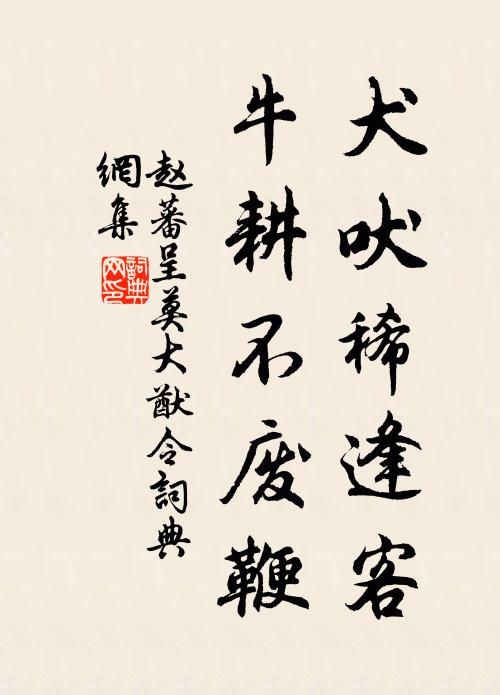 犬吠稀逢客
牛耕不废鞭
赵蕃呈莫大猷令詞典
網集
詞典
网印